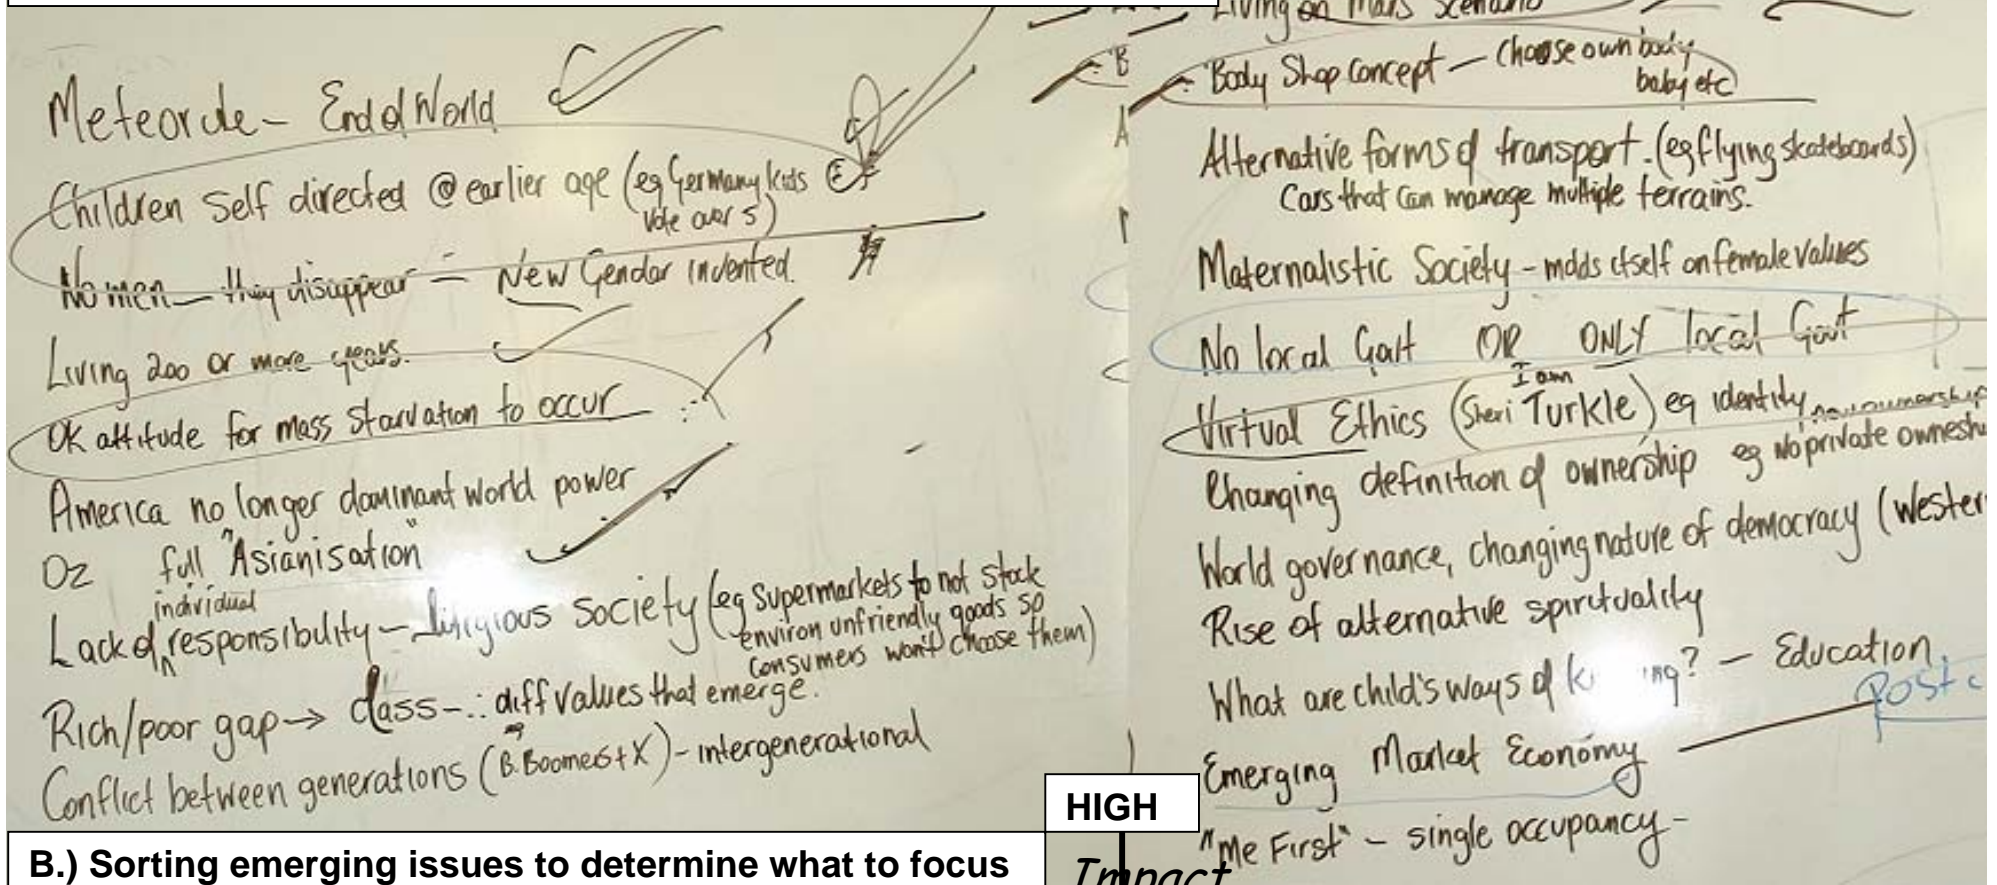 Meteorite – End of World
Children Self directed @ earlier age (eg Germany kids
vote over 5)
No men – they disappear – New Gendar invented.
Living 200 or more years.
OK attitude for mass starvation to occur
America no longer dominant world power
Oz full "Asianisation"
individual
Lack of responsibility – litigious society (eg Supermarkets to not stock
environ unfriendly goods so
consumers won't choose them)
Rich/poor gap → class – ∴ diff values that emerge.
Conflict between generations (B. Boomers + X) – intergenerational
B.) Sorting emerging issues to determine what to focus
HIGH
Impact
Living on Mars Scenario
Body Shop concept – Choose own body
baby etc
Alternative forms of transport. (eg flying skateboards)
Cars that can manage multiple terrains.
Maternalistic Society – molds itself on female values
No local Govt OR ONLY local Govt
I am
Virtual Ethics (Sheri Turkle) eg identity
Changing definition of ownership eg No private
World governance, changing nature of democracy (Wester
Rise of alternative spirituality
What are child's ways of – Education
Post c
Emerging Market Economy
"Me First" – single occupancy –